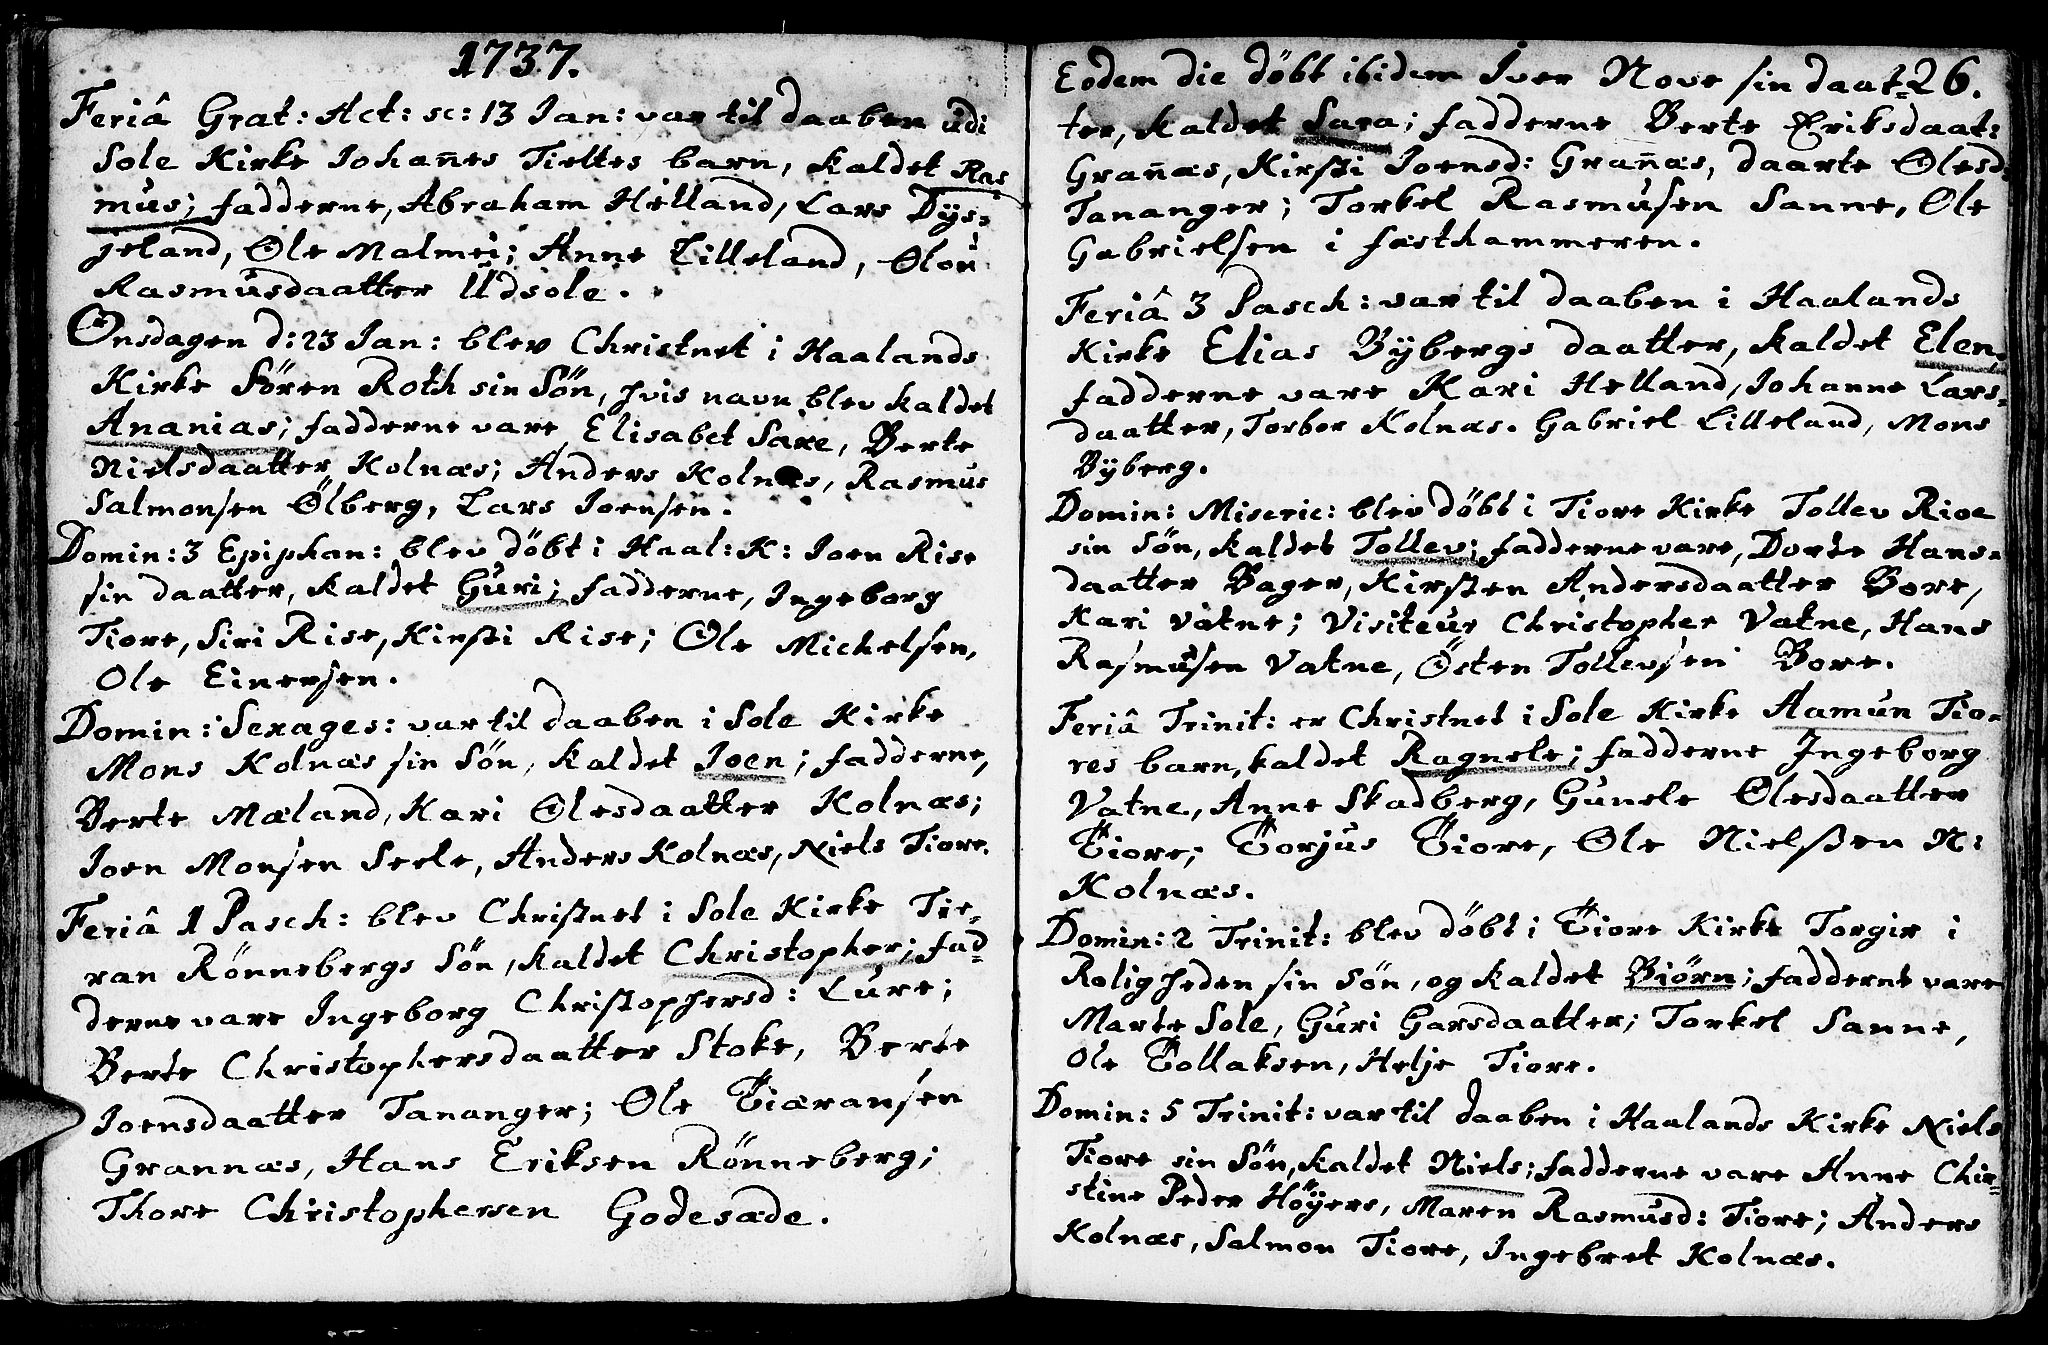 1737.
Feriâ Grat: Act: sc: 13 Ian: var til daaben udi
Sole Kirke Iohan̄es Tieltes barn, kaldet Ras
mus; fadderne, Abraham Helland, Lars Dÿs=
jeland, Ole Malmei; Anne Lilleland, Olou
Rasmusdaatter Udsole.
Onsdagen d: 23 Ian: blev Christnet i Haalands
Kirke Sören Roth sin Sön, hvis navn blev kaldet
Ananias; fadderne vare, Elisabet Saxe, Berte
Nielsdaatter Kolnæs; Anders Kolnæs, Rasmus
Salmonsen Ölberg, Lars Ioensen.
Domin: 3 Epiphan: blev döbt i Haal: K: Ioen Rise
sin daatter, kaldet Guri; fadderne, Ingeborg
Tiore, Siri Rise, Kirsti Rise; Ole Michelsen,
Ole Einersen.
Domin: Sexages: var til daaben i Sole Kirke
Mons Kolnæs sin Sön, kaldet Ioen; fadderne,
Berte Mæland, Kari Olesdaatter Kolnæs;
Ioen Monsen Seele, Anders Kolnæs, Niels Tiore.
Feriâ 1 Pasch: blev Christnet i Sole Kirke Tie-
ran Rönnebergs Sön, kaldet Christopher; fad=
derne vare Ingeborg Christophersd: Lure;
Berte Christophersdaatter Stoke, Berte
Ioensdaatter Tananger; Ole Tiæransen
Grannæs, Hans Eriksen Rönneberg;
Thore Christophersen Godesæde.
Eodem die döbt ibidem Iver Nove sin daat= 26.
ter, kaldet Sara; fadderne Berte Eriksdaat:
Gran̄æs, Kirsti Ioensd: Gran̄æs, daarte Olesd:
Tananger; Torkel Rasmusen Sanne, Ole
Gabrielsen i fæsthammeren.
Feriâ 3 Pasch: var til daaben i Haalands
Kirke Elias Bÿbergs daatter, kaldet Elen,
fadderne vare Kari Helland, Iohanne Lars=
daatter, Torbor Kolnæs. Gabriel Lilleland, Mons
Bÿberg.
Domin: Miseric: blev döbt i Tiore Kirke Tollev Rioe
sin Sön, kaldet Tollev; fadderne vare, Dorte Hans=
daatter Bager, Kirsten Andersdaatter Bore,
Kari Vatne; Visiteur Christopher Vatne, Hans
Rasmusen Vatne, Östen Tollevsen Bore.
Feriâ Trinit: er Christnet i Sole Kirke Aamun Tio-
res barn, kaldet Ragnele; fadderne Ingeborg
Vatne, Anne Skadberg, Gunele Olesdaatter
Tiore; Torjus Tiore, Ole Nielsen N:
Kolnæs.
Domin: 2 Trinit: blev döbt i Tiore Kirke Torgir i
Roligheden sin Sön, og kaldet Biörn; fadderne vare
Marte Sole, Guri Garsdaatter; Torkel Sanne,
Ole Tollaksen, Helje Tiore.
Domin: 5 Trinit: var til daaben i Haalands Kirke Niels
Tiore sin Sön, kaldet Niels; fadderne vare Anne Chir-
stine Peder Höÿers, Maren Rasmusd: Tiore; Anders
Kolnæs, Salmon Tiore, Ingebret Kolnæs.